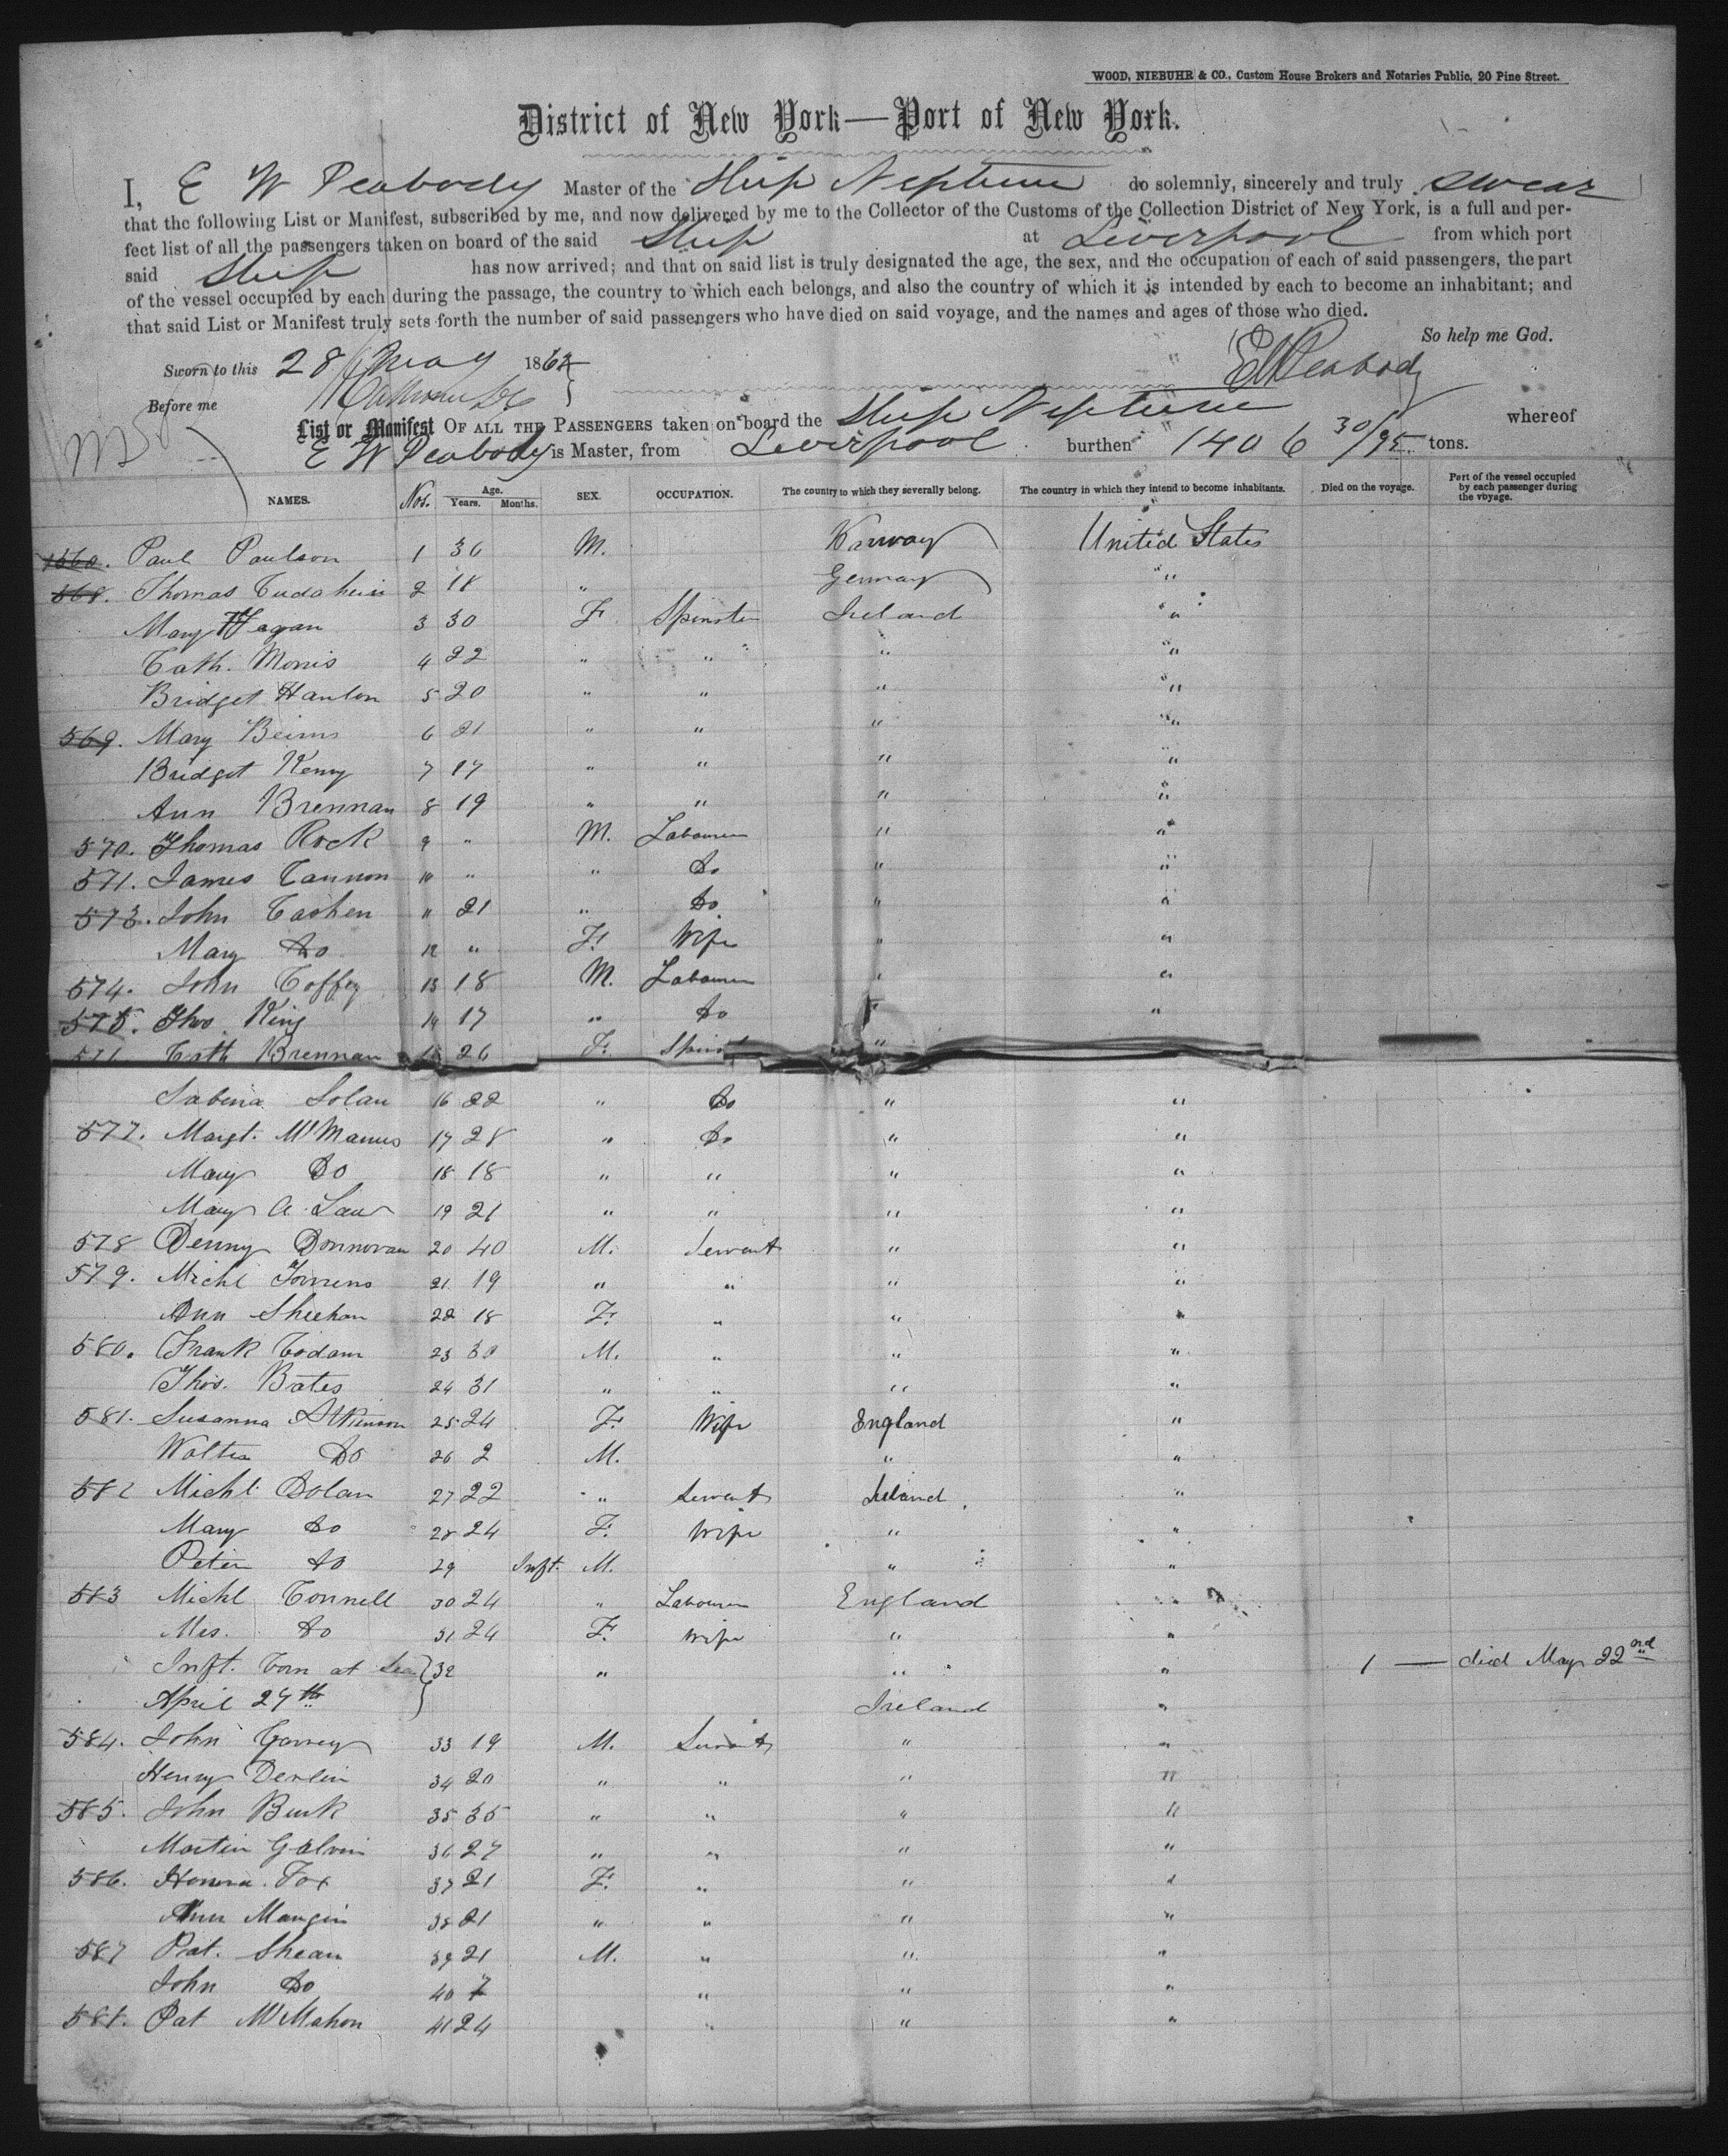 WOOD, NIEBUHR & CO., Custom House Brokers and Notaries Public, 20 Pine Street.
District of New York—Port of New York.
I, E W Peabody Master of the Ship Neptune do solemnly, sincerely and truly swear
that the following List or Manifest, subscribed by me, and now delivered by me to the Collector of the Customs of the Collection District of New York, is a full and per-
fect list of all the passengers taken on board of the said Ship at Liverpool from which port
said Ship has now arrived; and that on said list is truly designated the age, the sex, and the occupation of each of said passengers, the part
of the vessel occupied by each during the passage, the country to which each belongs, and also the country of which it is intended by each to become an inhabitant; and
that said List or Manifest truly sets forth the number of said passengers who have died on said voyage, and the names and ages of those who died.
So help me God.
Sworn to this 28 May 186 E W Peabody
Before me
List or Manifest OF ALL THE PASSENGERS taken on board the Ship Neptune whereof
E W Peabody is Master, from Liverpool burthen 1406 30/95 tons.
NAMES. Nos. Age. Years. Months. SEX. OCCUPATION. The country to which they severally belong. The country in which they intend to become inhabitants. Died on the voyage. Part of the vessel occupied by each passenger during the voyage.
Paul Paulson 1 36 M. Norway United States
568. Thomas 2 18 " Germany "
Mary Fagan 3 30 F Spinster Ireland "
Cath. Morris 4 22 " " " "
Bridget Hanlon 5 20 " " " "
569. Mary Beirns 6 21 " " " "
Bridget Kenny 7 17 " " " "
Ann Brennan 8 19 " " " "
570. Thomas Rock 9 " M. Labourer " "
571. James Cannon 10 " " Do " "
573. John Cashen 11 21 " Do " "
Mary Do 12 " F. Wife " "
574. John Coffey 13 18 M. Labourer " "
575. Thos. King 14 17 " Do " "
Cath Brennan 15 26 F. "
Sabina Solan 16 22 " Do " "
577. Margt. McManus 17 28 " Do " "
Mary Do 18 18 " " " "
Mary A. Law 19 21 " " " "
578 Denny Donnovan 20 40 M. Servant " "
579. Michl 21 19 " " " "
Ann Sheehan 22 18 F. " " "
580. Frank Codam 23 30 M. " " "
Thos. Bates 24 31 " " " "
581. Susanna Atkinson 25 24 F. Wife England "
Walter Do 26 2 M. " "
582 Michl Dolan 27 22 " Servant Ireland "
Mary Do 28 24 F. Wife " "
Peter Do 29 Inft. M. " "
583 Michl Connell 30 24 " Labourer England "
Mrs. Do 31 24 F. Wife " "
Inft. born at Sea 32 " " " 1 — died May 22nd
April 27th Ireland "
584. John Garvey 33 19 M. Servant " "
Henry Devlin 34 20 " " " "
585. John Burk 35 35 " " " "
Martin Galvin 36 27 " " " "
586. Honora Fox 37 21 F. " " "
Ann Mangin 38 21 " " " "
587 Pat. Shean 39 21 M. " " "
John Do 40 7 " " "
588. Pat McMahon 41 24 " " "